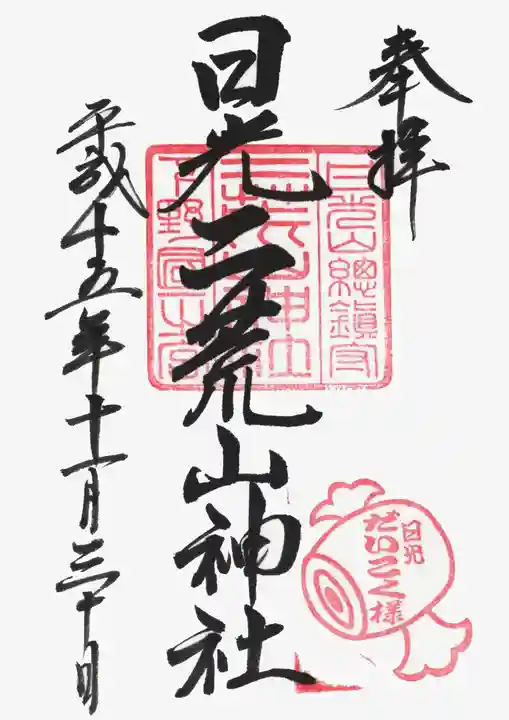 奉拝
日光二荒山神社
平成十五年十一月三十日
日光山總鎮守
二荒山神社
下野國一之宮
日光
だいこく様